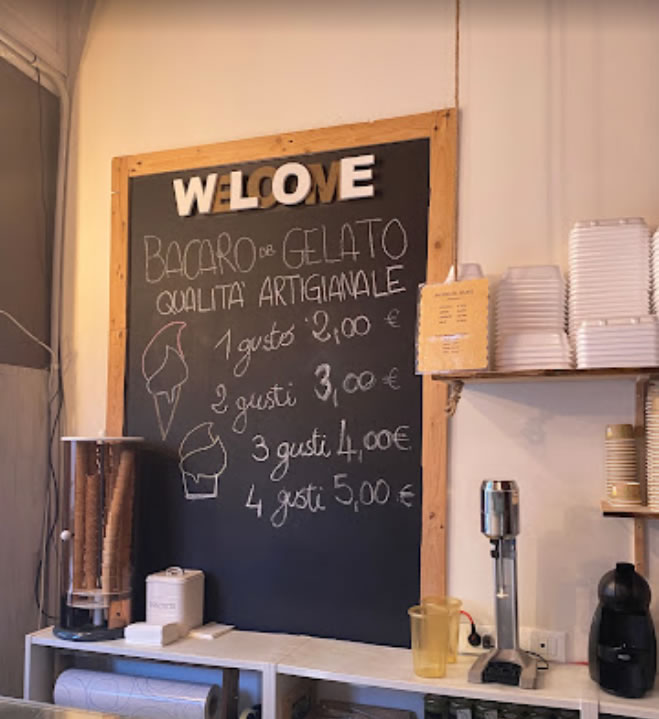 WELCOME
BACARO DEL GELATO
QUALITA' ARTIGIANALE
1 gusto 2,00 €
2 gusti 3,00 €
3 gusti 4,00€
4 gusti 5,00 €